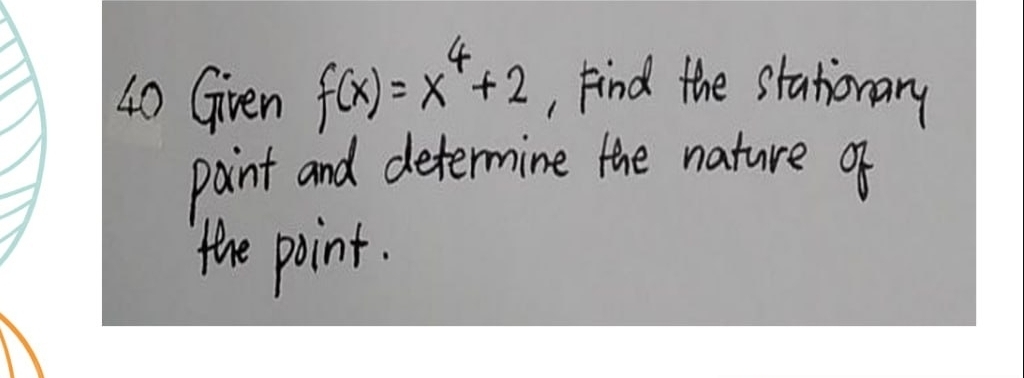 40 Given f(x) = x⁴ + 2, Find the stationary
point and determine the nature of
the point.